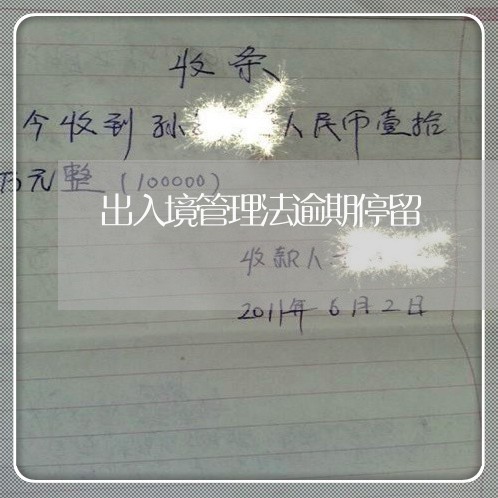 收条
今收到孙 人民币壹拾
万元整（100000）
出入境管理法逾期停留
收款人
2011年6月2日